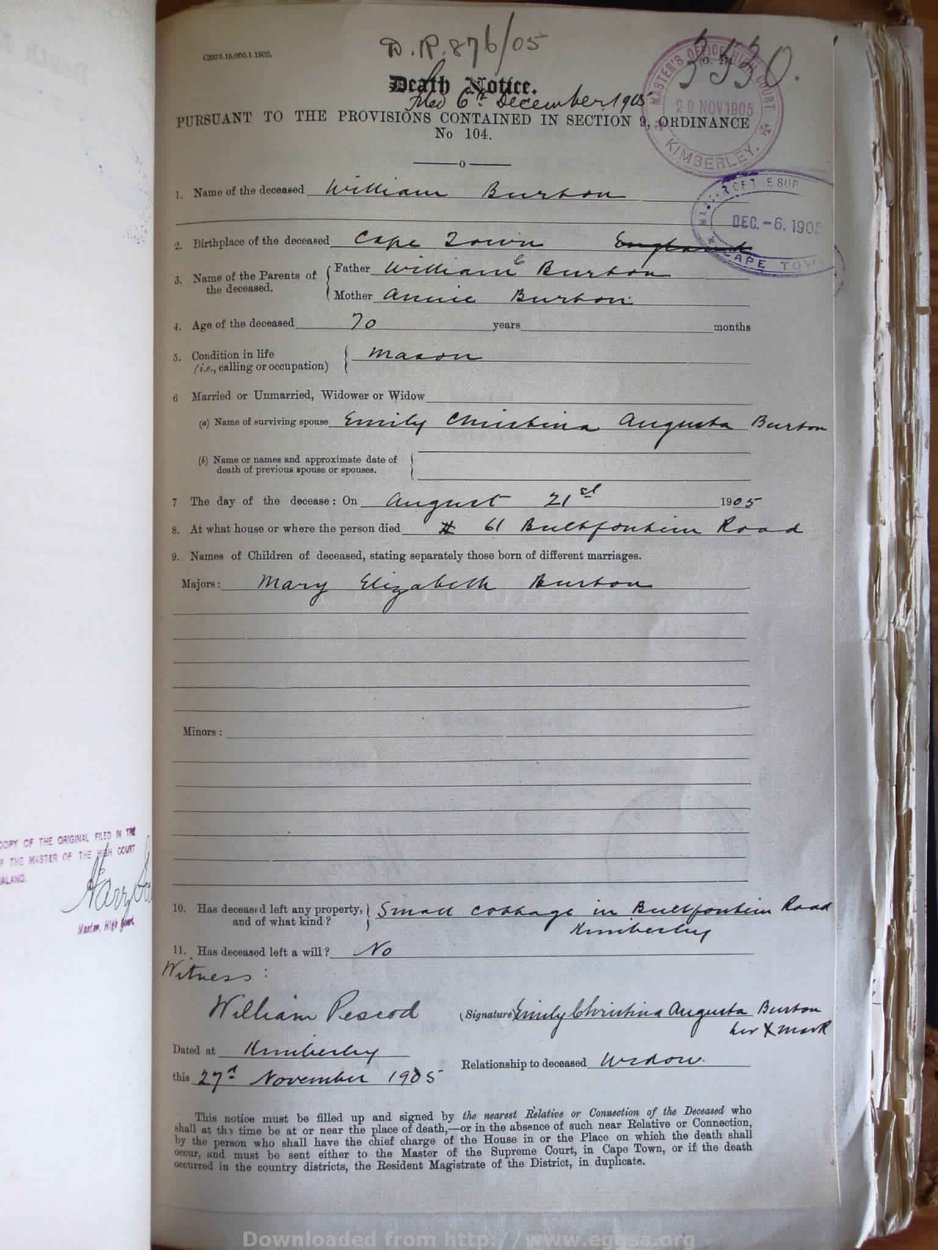 D.R. 876/05
3530.
Death Notice.
Filed 6th December 1905
PURSUANT TO THE PROVISIONS CONTAINED IN SECTION 9, ORDINANCE
No 104.
MASTER'S OFFICE HIGH COURT
29 NOV 1905
KIMBERLEY.
DEC. -6. 1905
CAPE TOWN
1. Name of the deceased William Burton
2. Birthplace of the deceased Cape Town England
3. Name of the Parents of the deceased. Father William Burton
Mother Annie Burton
4. Age of the deceased 70 years months
5. Condition in life Mason
(i.e., calling or occupation)
6 Married or Unmarried, Widower or Widow
(a) Name of surviving spouse Emily Christina Augusta Burton
(b) Name or names and approximate date of
death of previous spouse or spouses.
7 The day of the decease: On August 21st 1905
8. At what house or where the person died # 61 Bultfontein Road
9. Names of Children of deceased, stating separately those born of different marriages.
Majors: Mary Elizabeth Burton
Minors:
10. Has deceased left any property, Small cottage in Bultfontein Road
and of what kind? Kimberley
11. Has deceased left a will? No
Witness:
William Pescod (Signature) Emily Christina Augusta Burton
her X mark
Dated at Kimberley
Relationship to deceased Widow.
this 27d November 1905
This notice must be filled up and signed by the nearest Relative or Connection of the Deceased who
shall at the time be at or near the place of death,—or in the absence of such near Relative or Connection,
by the person who shall have the chief charge of the House in or the Place on which the death shall
occur, and must be sent either to the Master of the Supreme Court, in Cape Town, or if the death
occurred in the country districts, the Resident Magistrate of the District, in duplicate.
COPY OF THE ORIGINAL FILED IN THE
OF THE MASTER OF THE HIGH COURT
Master, High Court
Downloaded from http://www.eggsa.org